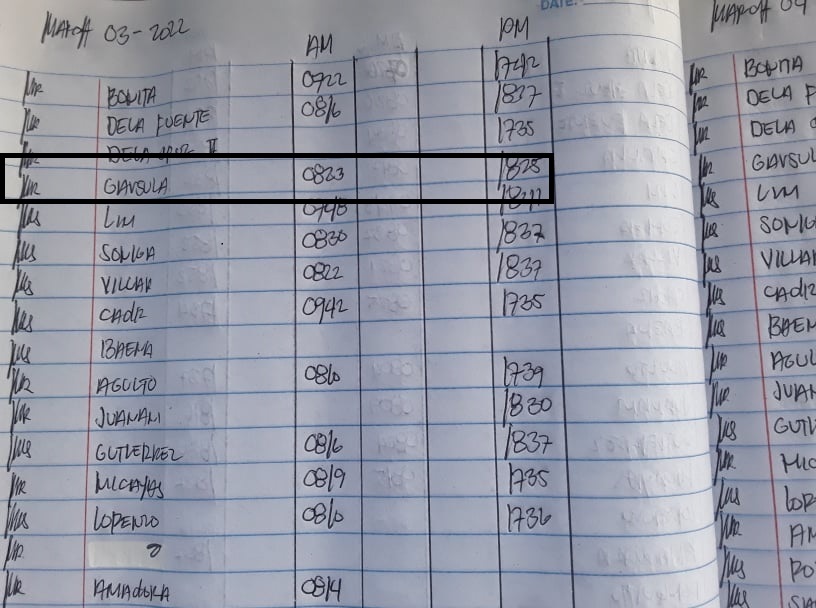 MARCH 03-2022
DATE:
AM PM
1742
MR BONITA 0922 1837
MR DELA FUENTE 0816 1735
MR DELA CRUZ II 1828
MR GAVSULA 0823 1841
MS LIM 0748
MS SONIGA 0830 1837
MS VILLAR 0822 1837
MS CADIZ 0942 1735
MS BAENA
MR AGULTO 0810 1739
MR JUANANI 1830
MS GUTIERREZ 0816 1837
MR MICAYAS 0819 1735
MS LORENZO 0810 1736
MR
MR AMADORA 0814
MARCH 04
MR BONITA
MR DELA F
MR DELA
MR GAVSUL
MS LIM
MS SONIG
MS VILLAR
MS CADIZ
MS BAEN
MR AGUL
MR JUAN
MS GUTI
MR MIC
MS LOR
MR AM
MS
MS